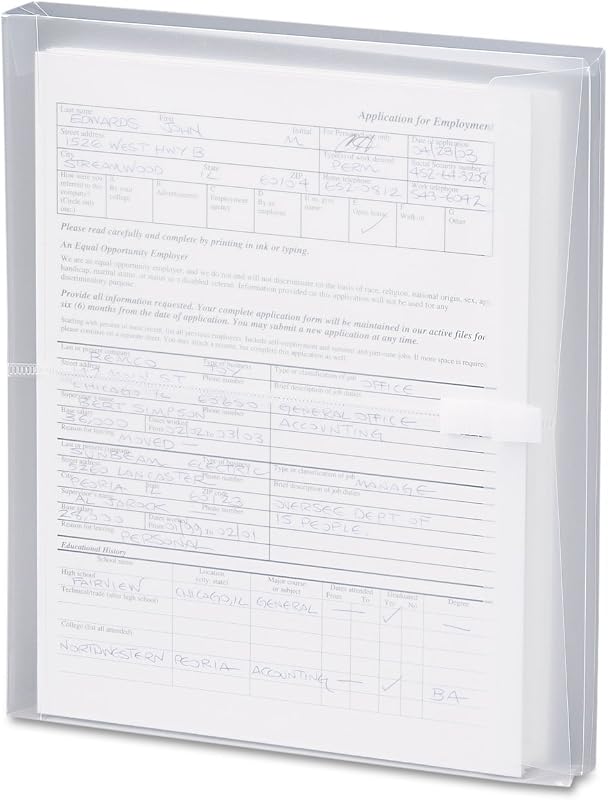 Application for Employment
Last name First Initial For Personnel use only Date of application
EDWARDS JOHN M 04/23/03
Street address Type(s) of work desired Social Security number
1526 WEST HWY B PERM
City State ZIP Home telephone Work telephone
STREAMWOOD IL 60104 652-0812 543-6092
How were you referred to this company? (Circle only one.) A By your college B Advertisement C Employment agency D By an employee E Open house F Walk-in G Other
Please read carefully and complete by printing in ink or typing.
An Equal Opportunity Employer
We are an equal opportunity employer, and we do not and will not discriminate on the basis of race, religion, national origin, sex, age,
handicap, marital status, or status as a disabled veteran. Information provided on this application will not be used for any
discriminatory purpose.
Provide all information requested. Your complete application form will be maintained in our active files for
six (6) months from the date of application. You may submit a new application at any time.
Last or present company Type of business Type or classification of job
REMCO TOY OFFICE
Street address Phone number Brief description of job duties
MAIN ST
CHICAGO IL 60600 GENERAL OFFICE
Supervisor's name Phone number
BERT SIMPSON ACCOUNTING
Base salary Dates worked
36,000 From 02/02 to 03/03
Reason for leaving
MOVED —
Last or present company Type of business Type or classification of job
SUNBEAM ELECTRIC MANAGE
Street address Phone number Brief description of job duties
LANCASTER
City State ZIP code
PEORIA IL OVERSEE DEPT OF
Supervisor's name Phone number
AL 15 PEOPLE.
Base salary Dates worked
24,000 From to 02/01
Reason for leaving
PERSONAL
Educational History
School name Location (city, state) Major course or subject Dates attended From To Graduated Yes No Degree
High school
FAIRVIEW CHICAGO, IL GENERAL — ✓ —
Technical/trade (after high school)
College (list all attended)
NORTHWESTERN PEORIA ACCOUNTING — ✓ BA